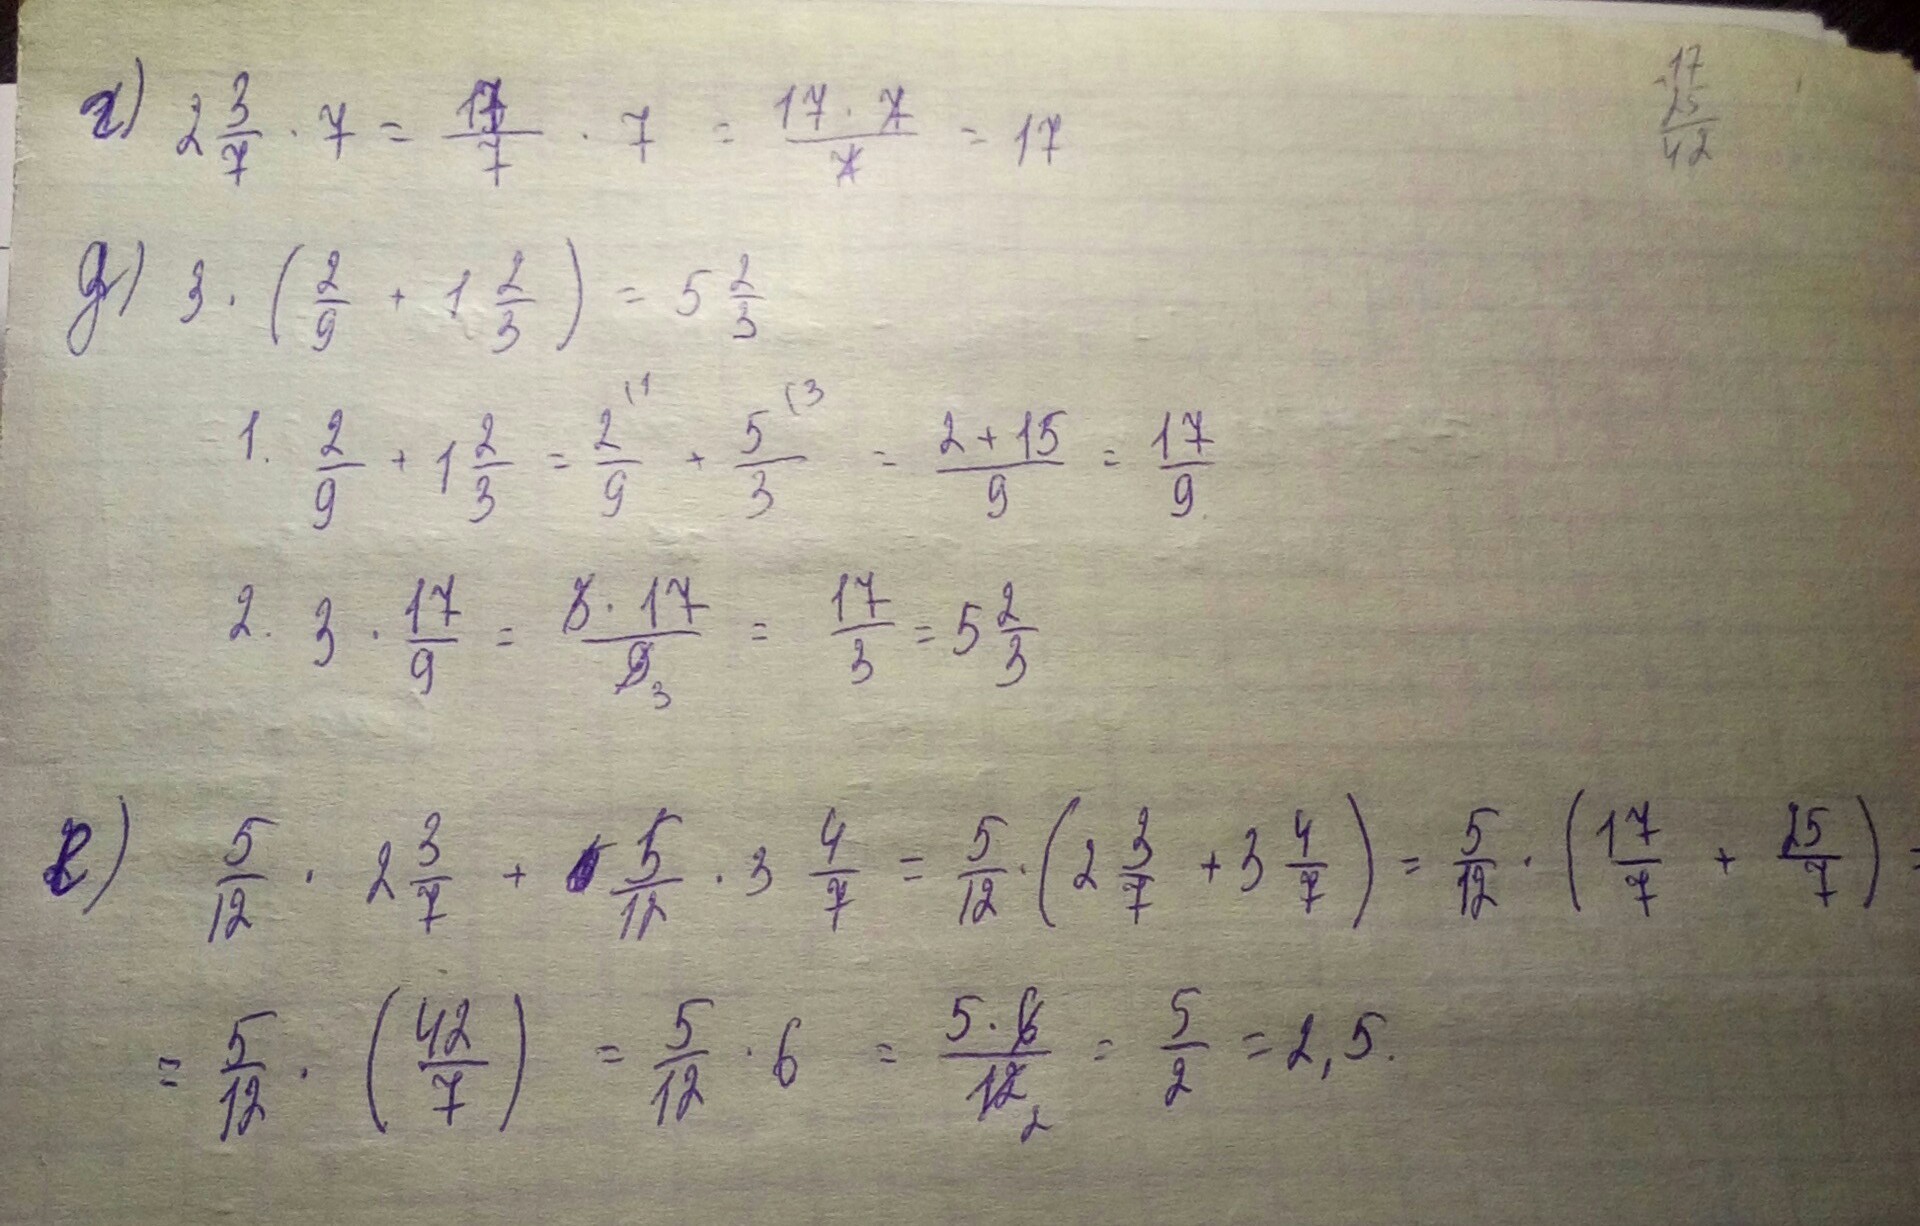 г) 2 3/7 · 7 = 17/7 · 7 = 17 · 7/7 = 17
17
25
42
д) 3 · (2/9 + 1 2/3) = 5 2/3
1. 2/9 + 1 2/3 = 2/9 (1 + 5/3 (3 = 2+15/9 = 17/9
2. 3 · 17/9 = 3 · 17/9 3 = 17/3 = 5 2/3
е) 5/12 · 2 3/7 + 5/12 · 3 4/7 = 5/12 · (2 3/7 + 3 4/7) = 5/12 · (17/7 + 25/7) =
= 5/12 · (42/7) = 5/12 · 6 = 5 · 6/12 2 = 5/2 = 2,5.